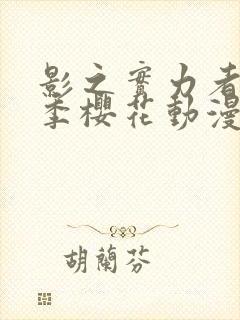 影之實力者
季櫻花動漫
胡蘭芬